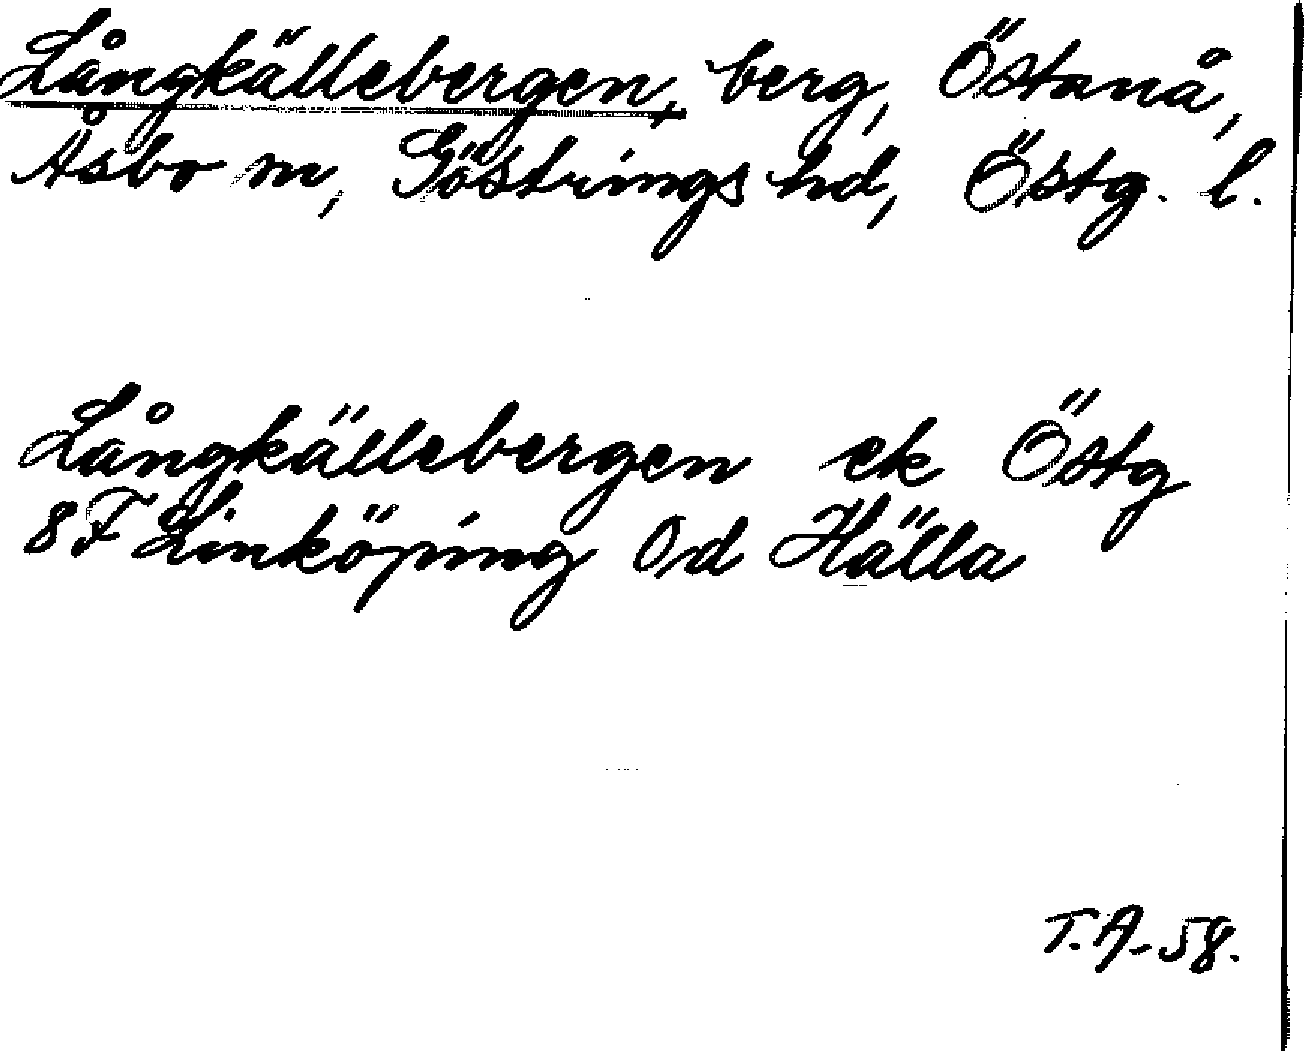 Långkällebergen, berg, Östanå,
Åsbo sn, Göstrings hd, Östg. l.
Långkällebergen ek Östg
8F Linköping 0d Hälla
T.A-58.